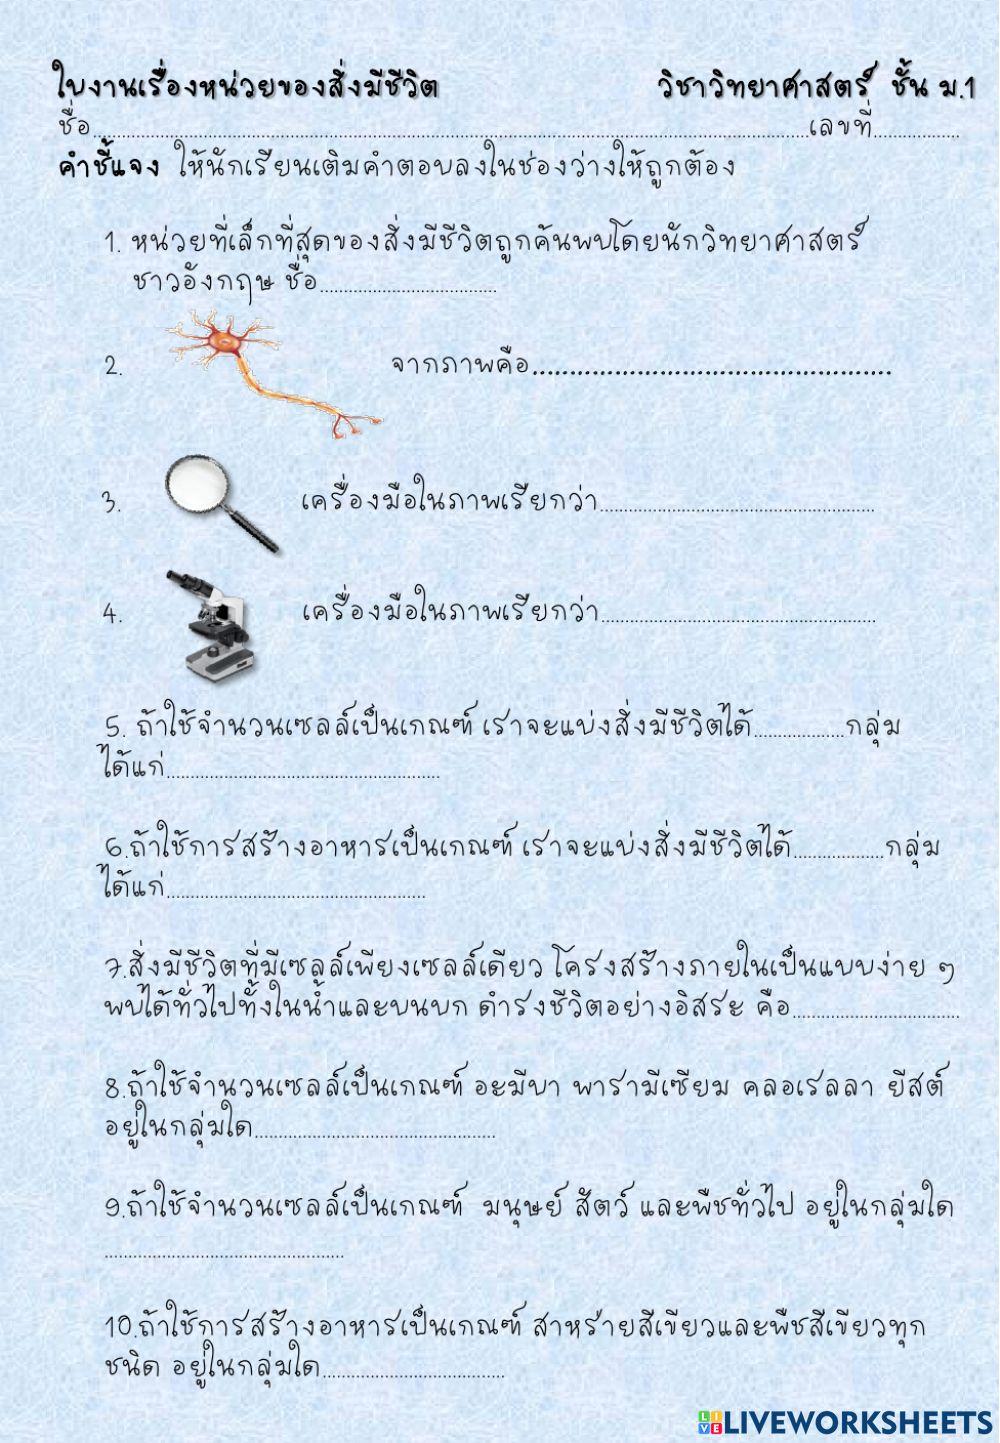 ใบงานเรื่องหน่วยของสิ่งมีชีวิต วิชาวิทยาศาสตร์ ชั้น ม.1
ชื่อ....................................................................................................เลขที่..................
คำชี้แจง ให้นักเรียนเติมคำตอบลงในช่องว่างให้ถูกต้อง
1. หน่วยที่เล็กที่สุดของสิ่งมีชีวิตถูกค้นพบโดยนักวิทยาศาสตร์
ชาวอังกฤษ ชื่อ.....................................
2. จากภาพคือ................................................
3. เครื่องมือในภาพเรียกว่า.........................................................
4. เครื่องมือในภาพเรียกว่า.........................................................
5. ถ้าใช้จำนวนเซลล์เป็นเกณฑ์ เราจะแบ่งสิ่งมีชีวิตได้...................กลุ่ม
ได้แก่.........................................................
6.ถ้าใช้การสร้างอาหารเป็นเกณฑ์ เราจะแบ่งสิ่งมีชีวิตได้...................กลุ่ม
ได้แก่......................................................
7.สิ่งมีชีวิตที่มีเซลล์เพียงเซลล์เดียว โครงสร้างภายในเป็นแบบง่าย ๆ
พบได้ทั่วไปทั้งในน้ำและบนบก ดำรงชีวิตอย่างอิสระ คือ...................................
8.ถ้าใช้จำนวนเซลล์เป็นเกณฑ์ อะมีบา พารามีเซียม คลอเรลลา ยีสต์
อยู่ในกลุ่มใด..................................................
9.ถ้าใช้จำนวนเซลล์เป็นเกณฑ์ มนุษย์ สัตว์ และพืชทั่วไป อยู่ในกลุ่มใด
..................................................
10.ถ้าใช้การสร้างอาหารเป็นเกณฑ์ สาหร่ายสีเขียวและพืชสีเขียวทุก
ชนิด อยู่ในกลุ่มใด......................................
LIVEWORKSHEETS